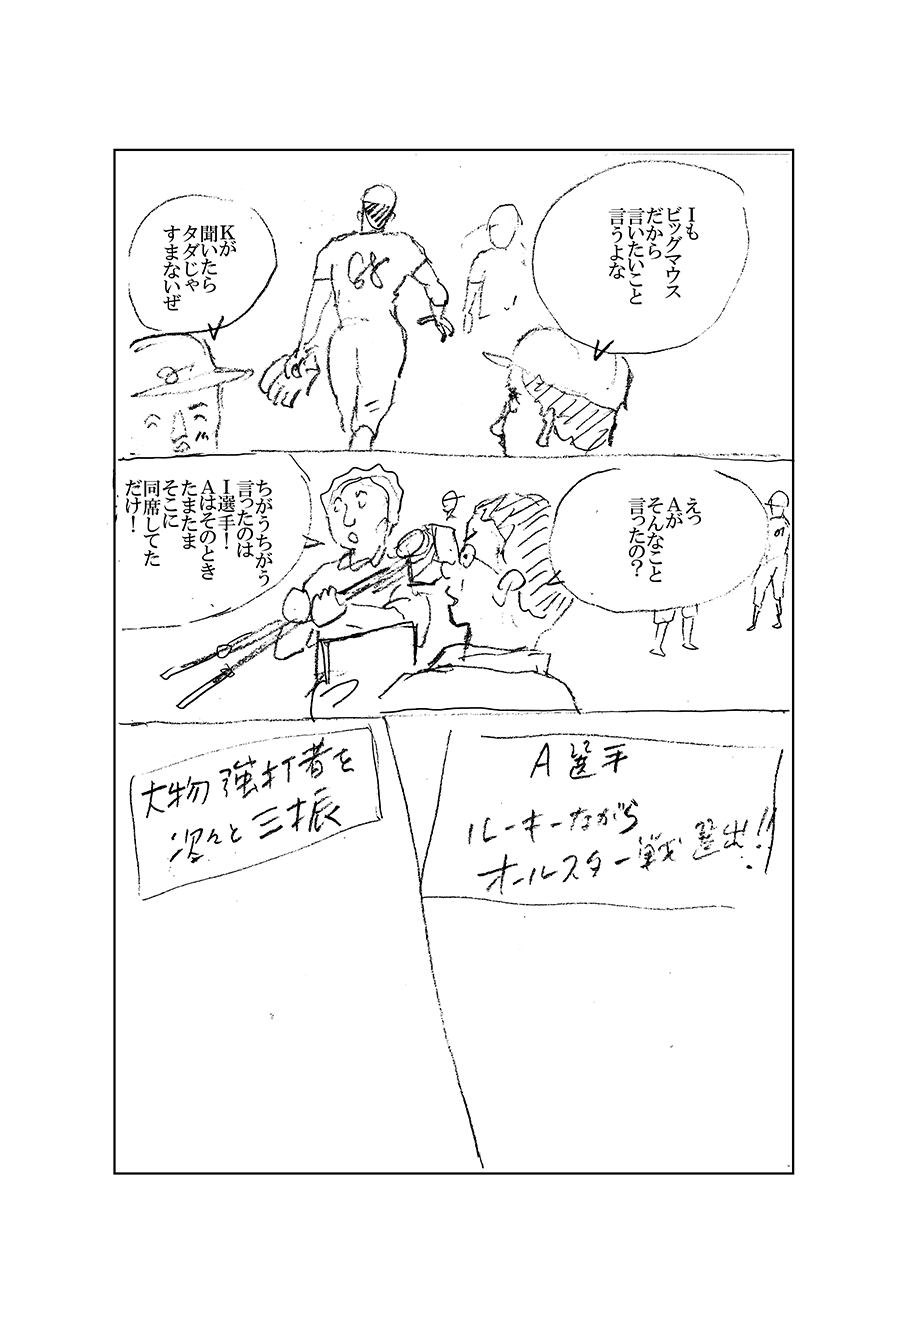 Iも
ビッグマウス
だから
言いたいこと
言うよな
Kが
聞いたら
タダじゃ
すまないぜ
68
えっ
Aが
そんなこと
言ったの？
ちがうちがう
言ったのは
I選手！
Aはそのとき
たまたま
そこに
同席してた
だけ！
A選手
ルーキーながら
オールスター戦選出!!
大物強打者を
次々と三振